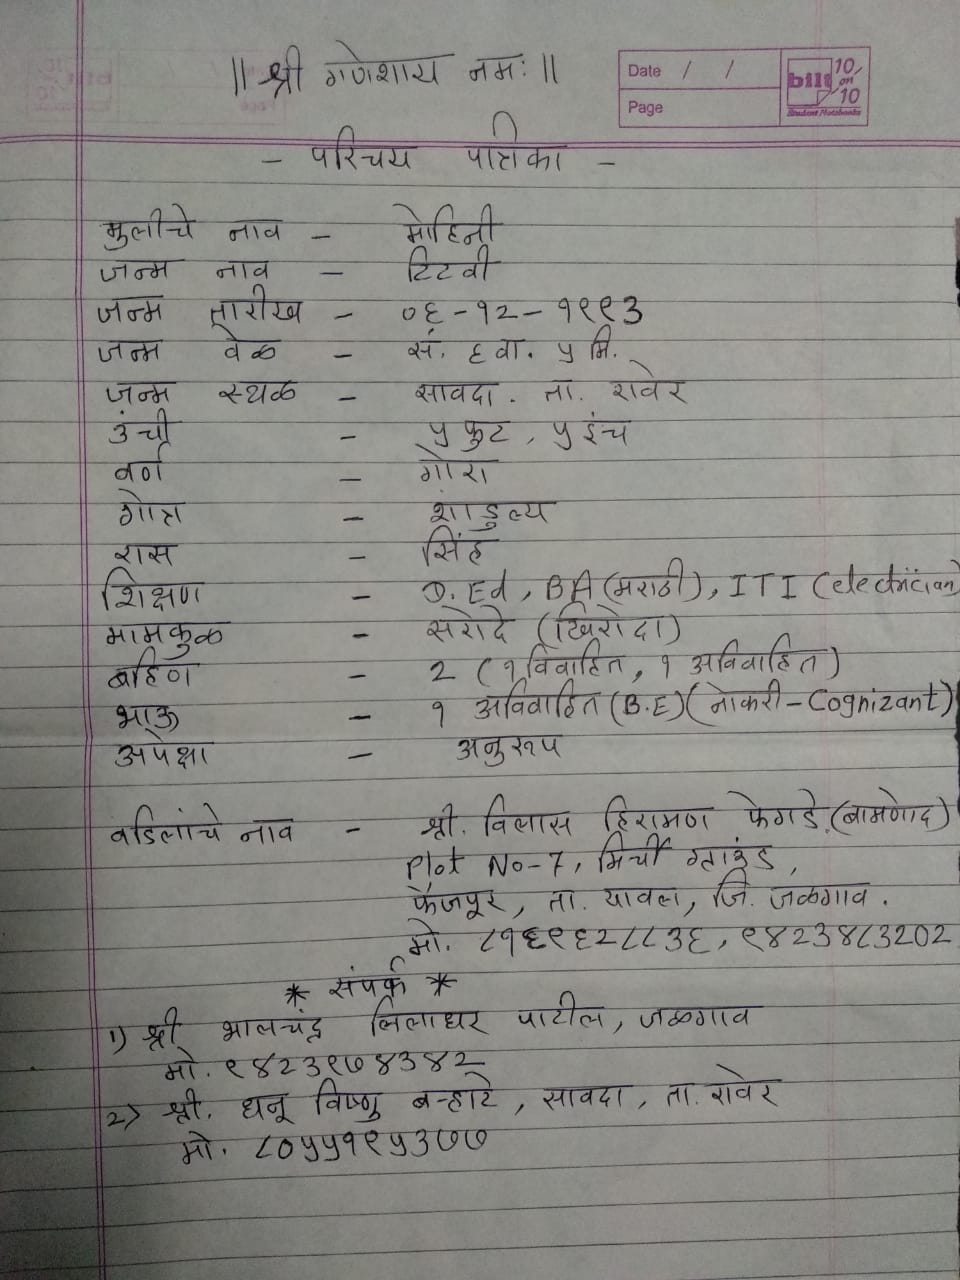 || श्री गणेशाय नमः ||
Date / /
Page
bilt 10 on 10
Student Notebooks
- परिचय पत्रिका -
मुलीचे नाव - मोहिनी
जन्म नाव - टिटवी
जन्म तारीख - ०६-१२-१९९३
जन्म वेळ - सं. ६ वा. ५ मि.
जन्म स्थळ - सावदा. ता. रावेर
उंची - ५ फुट, ५ इंच
वर्ण - गोरा
गोत्र - शांडुल्य
रास - सिंह
शिक्षण - D.Ed, BA (मराठी), ITI (electrician)
मामकुळ - सरोदे (खिरोदा)
बहिण - 2 (१ विवाहित, १ अविवाहित)
भाऊ - १ अविवाहित (B.E) (नोकरी - Cognizant)
अपेक्षा - अनुरूप
वडिलांचे नाव - श्री. विलास हिरामण फेगडे. (बामणोद)
Plot No-7, मिर्ची ग्राउंड,
फैजपूर, ता. यावल, जि. जळगाव.
मो. ८१६९६२८८३६, ९४२३४८३202
* संपर्क *
1) श्री भालचंद्र लिलाधर पाटील, जळगाव
मो. ९४2३९७४३४2
2) श्री. धनू विष्णु बऱ्हाटे, सावदा, ता. रावेर
मो. ८०५५१९५३७७